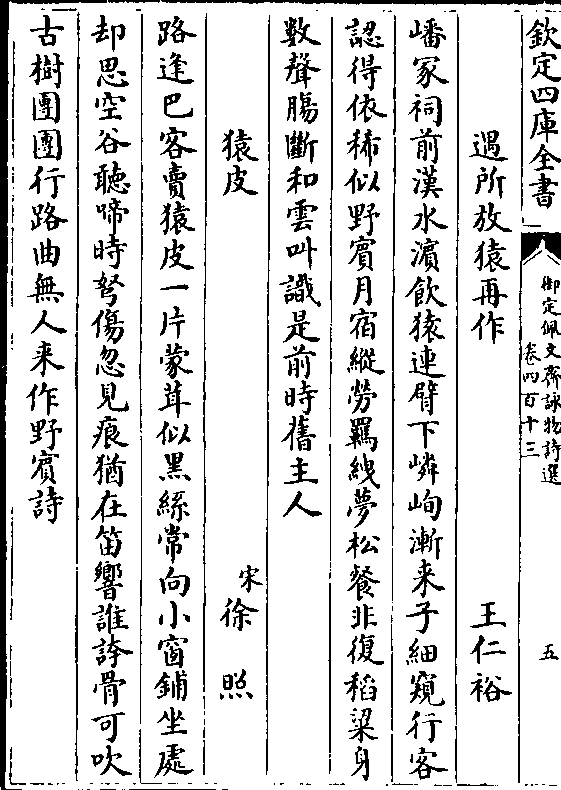 欽定四庫全書
御定佩文齋詠物詩選
卷四百十三
五
遇所放猿再作 王仁裕
嶓冢祠前漢水濵飲猿連臂下嶙峋漸来子細窺行客
認得依稀似野賓月宿縱勞羈絏夢松餐非復稻粱身
數聲腸斷和雲叫識是前時舊主人
猿皮 宋徐照
路逢巴客賣猿皮一片蒙茸似黑絲常向小窗鋪坐處
却思空谷聽啼時弩傷忽見痕猶在笛響誰誇骨可吹
古樹團團行路曲無人来作野賓詩